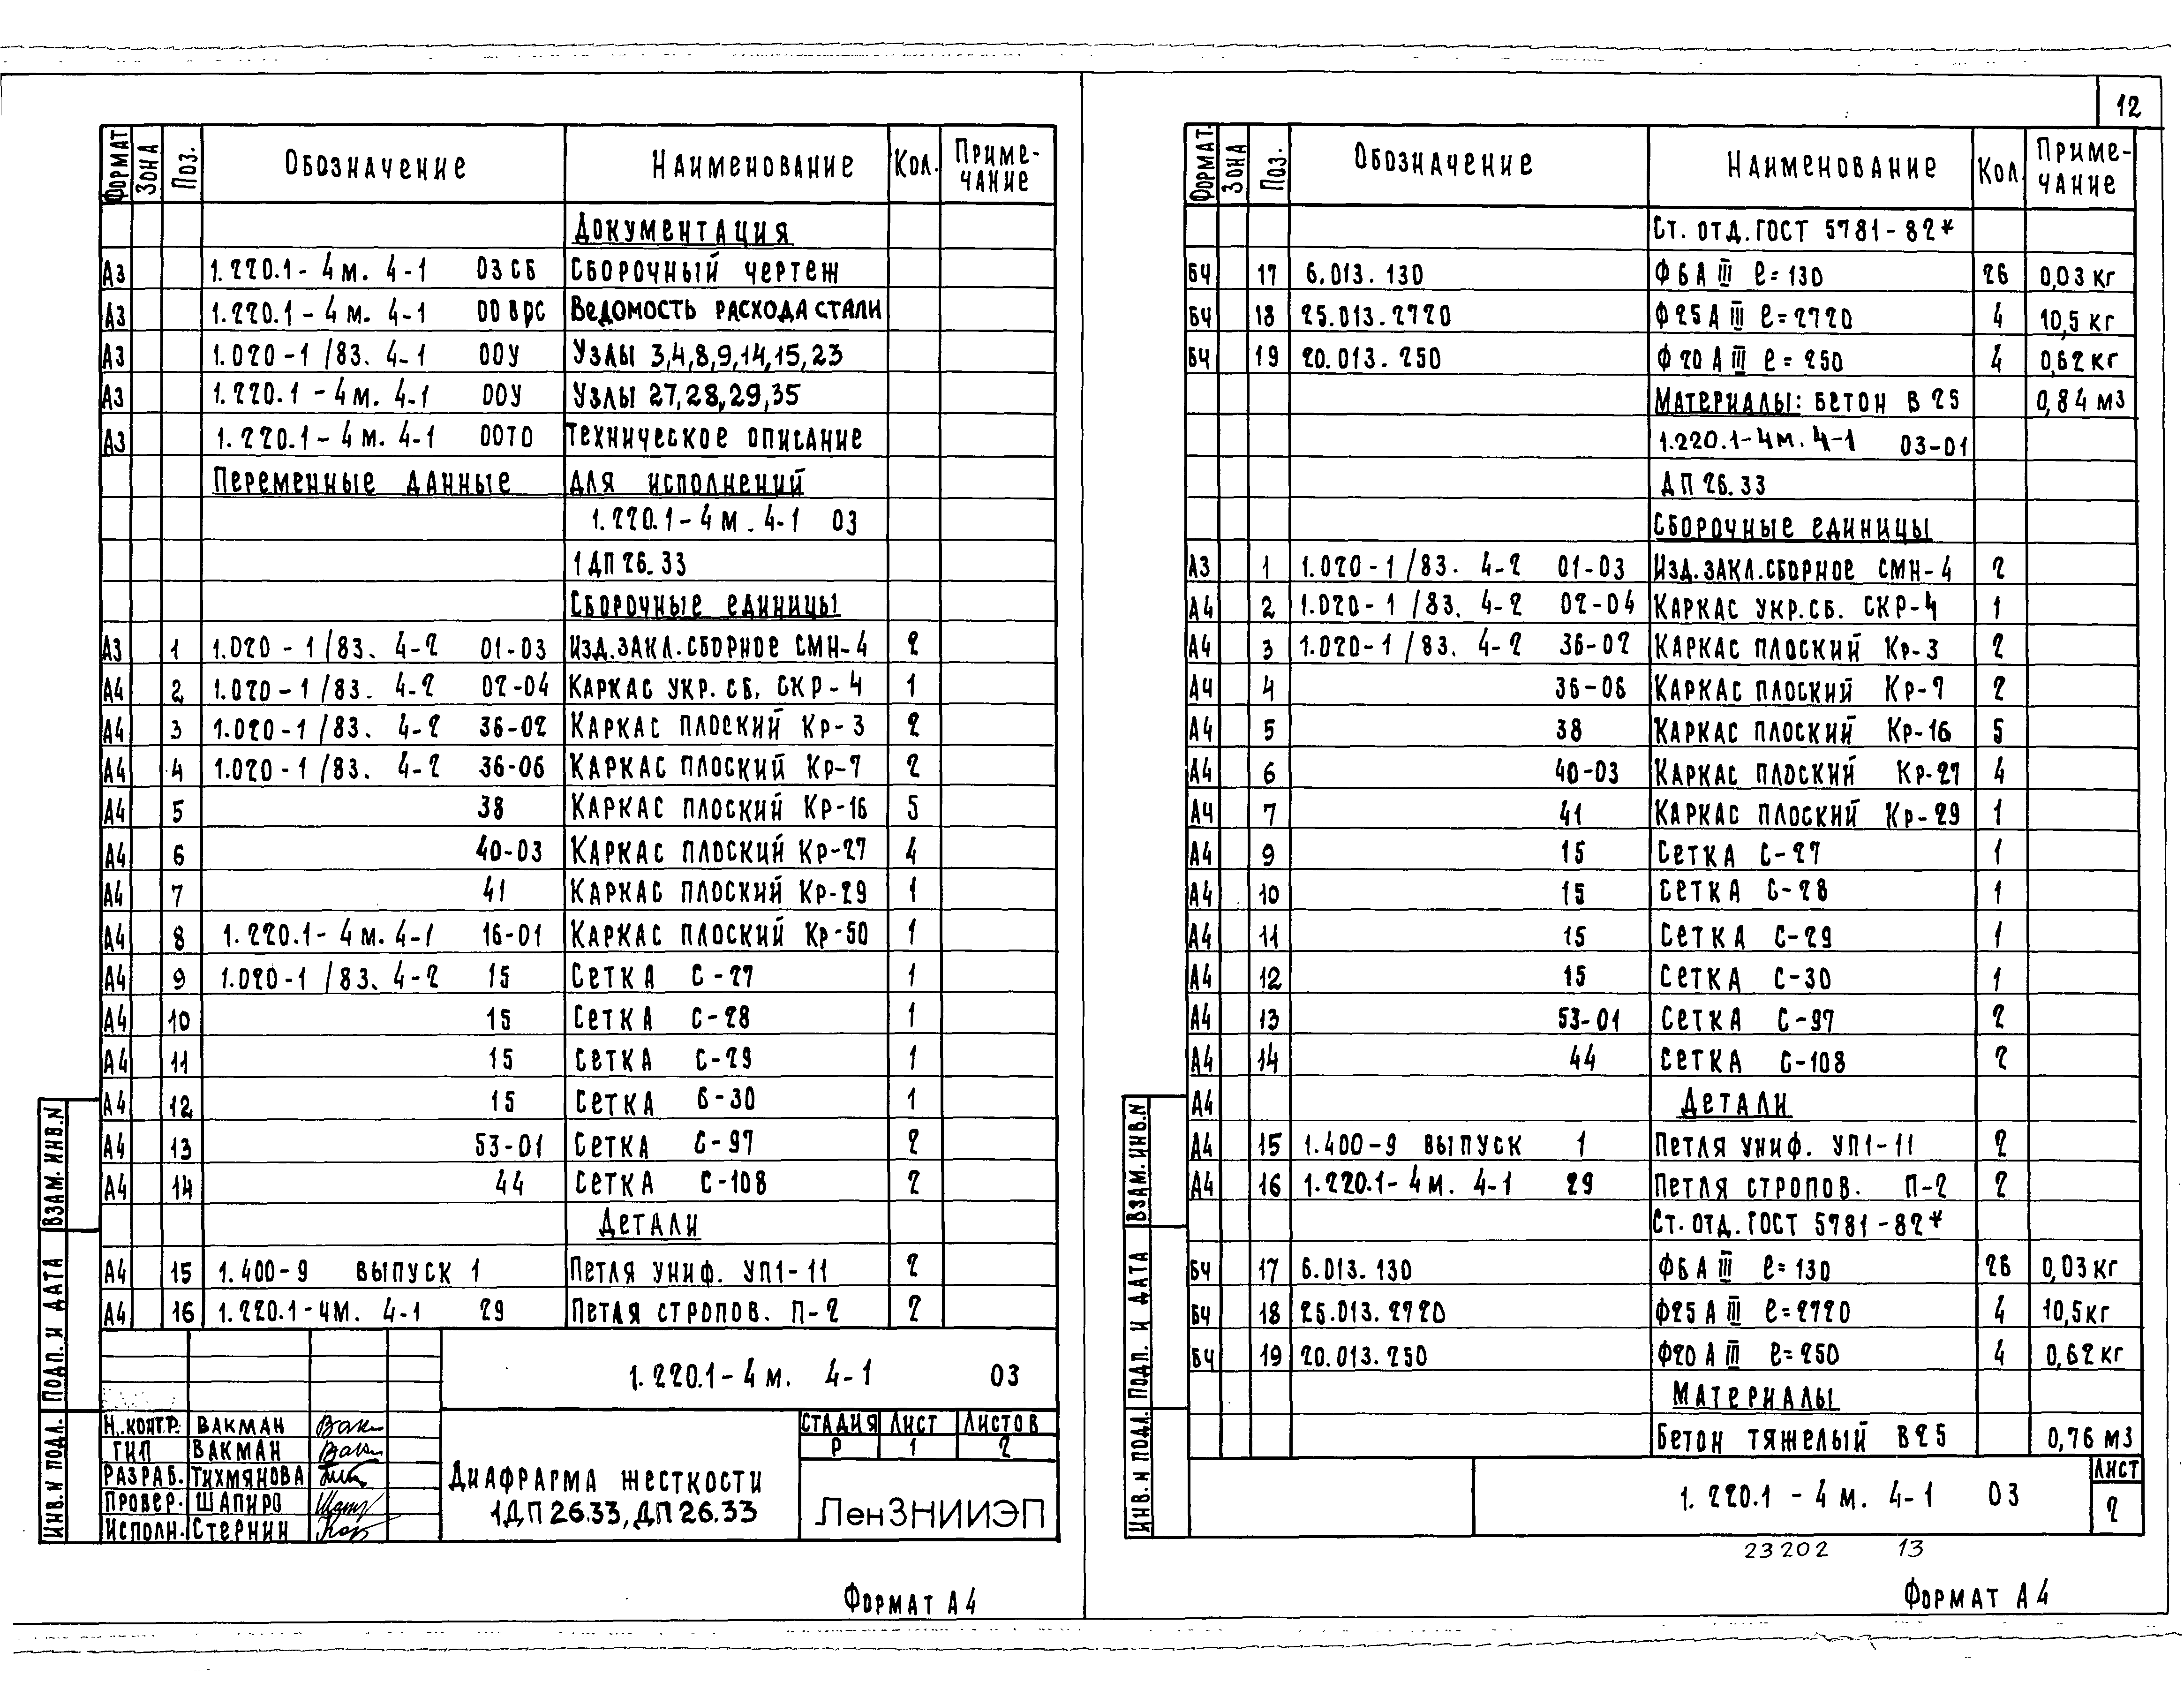 Формат Зона Поз. Обозначение Наименование Кол. Приме-
чание
Документация
А3 1.220.1-4м. 4-1 03СБ Сборочный чертеж
А3 1.220.1-4м. 4-1 00ВРС Ведомость расхода стали
А3 1.020-1/83. 4-1 00У Узлы 3,4,8,9,14,15,23
А3 1.220.1-4м. 4-1 00У Узлы 27,28,29,35
А3 1.220.1-4м. 4-1 00ТО Техническое описание
Переменные данные для исполнений
1.220.1-4м. 4-1 03
1ДП26.33
Сборочные единицы
А3 1 1.020-1/83. 4-2 01-03 Изд.закл.сборное СМН-4 2
А4 2 1.020-1/83. 4-2 02-04 Каркас укр. сб. СКР-4 1
А4 3 1.020-1/83. 4-2 36-02 Каркас плоский Кр-3 2
А4 4 1.020-1/83. 4-2 36-06 Каркас плоский Кр-7 2
А4 5 38 Каркас плоский Кр-16 5
А4 6 40-03 Каркас плоский Кр-27 4
А4 7 41 Каркас плоский Кр-29 1
А4 8 1.220.1-4м. 4-1 16-01 Каркас плоский Кр-50 1
А4 9 1.020-1/83. 4-2 15 Сетка С-27 1
А4 10 15 Сетка С-28 1
А4 11 15 Сетка С-29 1
А4 12 15 Сетка С-30 1
А4 13 53-01 Сетка С-97 2
А4 14 44 Сетка С-108 2
Детали
А4 15 1.400-9 выпуск 1 Петля униф. УП1-11 2
А4 16 1.220.1-4м. 4-1 29 Петля стропов. П-2 2
1.220.1-4м. 4-1 03
Н.контр. Вакман
ГИП Вакман
Разраб. Тихмянова
Провер. Шапиро
Исполн. Стернин
Диафрагма жесткости
1ДП26.33, ДП26.33
Стадия Лист Листов
Р 1 2
ЛенЗНИИЭП
Инв.и подл. Подп. и дата Взам. инв.N
Формат А4
12
Формат. Зона Поз. Обозначение Наименование Кол. Приме-
чание
Ст. отд. ГОСТ 5781-82*
БЧ 17 6.013.130 Ф6АIII ℓ=130 26 0,03кг
БЧ 18 25.013.2720 Ф25АIII ℓ=2720 4 10,5 кг
БЧ 19 20.013.250 Ф20АIII ℓ=250 4 0,62кг
Материалы: бетон В25 0,84 м3
1.220.1-4м. 4-1 03-01
ДП26.33
Сборочные единицы
А3 1 1.020-1/83. 4-2 01-03 Изд.закл.сборное СМН-4 2
А4 2 1.020-1/83. 4-2 02-04 Каркас укр.сб. СКР-4 1
А4 3 1.020-1/83. 4-2 36-02 Каркас плоский Кр-3 2
А4 4 36-06 Каркас плоский Кр-7 2
А4 5 38 Каркас плоский Кр-16 5
А4 6 40-03 Каркас плоский Кр-27 4
А4 7 41 Каркас плоский Кр-29 1
А4 9 15 Сетка С-27 1
А4 10 15 Сетка С-28 1
А4 11 15 Сетка С-29 1
А4 12 15 Сетка С-30 1
А4 13 53-01 Сетка С-97 2
А4 14 44 Сетка С-108 2
А4 Детали
А4 15 1.400-9 выпуск 1 Петля униф. УП1-11 2
А4 16 1.220.1-4м. 4-1 29 Петля стропов. П-2 2
Ст. отд. ГОСТ 5781-82*
БЧ 17 6.013.130 Ф6АIII ℓ=130 26 0,03кг
БЧ 18 25.013.2720 Ф25АIII ℓ=2720 4 10,5кг
БЧ 19 20.013.250 Ф20АIII ℓ=250 4 0,62кг
Материалы
Бетон тяжелый В25 0,76 м3
1.220.1-4м. 4-1 03
Лист
2
Инв.и подл. Подп. и дата Взам.инв.N
23202 13
Формат А4